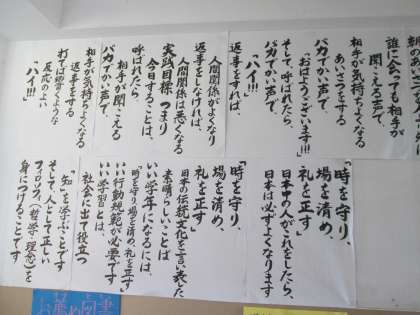 誰に会っても相手が
聞こえる声で、
あいさつをする
相手が気持ちよくなる
バカでかい声で、
「おはようございます!!!」
そして、呼ばれたら、
バカでかい声で、
「ハイ!!!」
返事をすれば、
人間関係がよくなり
返事をしなければ、
人間関係は悪くなる
実践目標 つまり
今日することは、
呼ばれたら
相手が聞こえる
バカでかい声で、
相手が気持ちよくなる
返事をする
打てば響くような
反応のよい
「ハイ!!!」
「時を守り、
場を清め、
礼を正す」
日本中の人がこれをしたら、
日本は必ずよくなります
「時を守り、
場を清め、
礼を正す」
日本の伝統文化を言い表した
素晴らしいことば
いい学年になるには、
「時を守り、場を清め、礼を正す」
いい行動規範が必要です
いい学習とは、
社会に出て役立つ
「知」を学ぶことです
そして、人として正しい
フィロソフィ(哲学、理念)を
身につけることです
お薦め図書